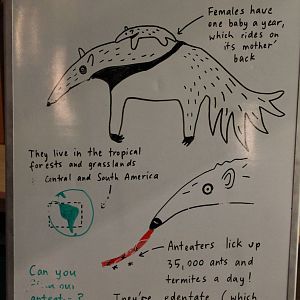 Females have
one baby a year,
which rides on
its mother'
back
They live in the tropical
forests and grasslands
Central and South America
Anteaters lick up
35,000 ants and
termites a day!
Can you
our
They're edentate (which